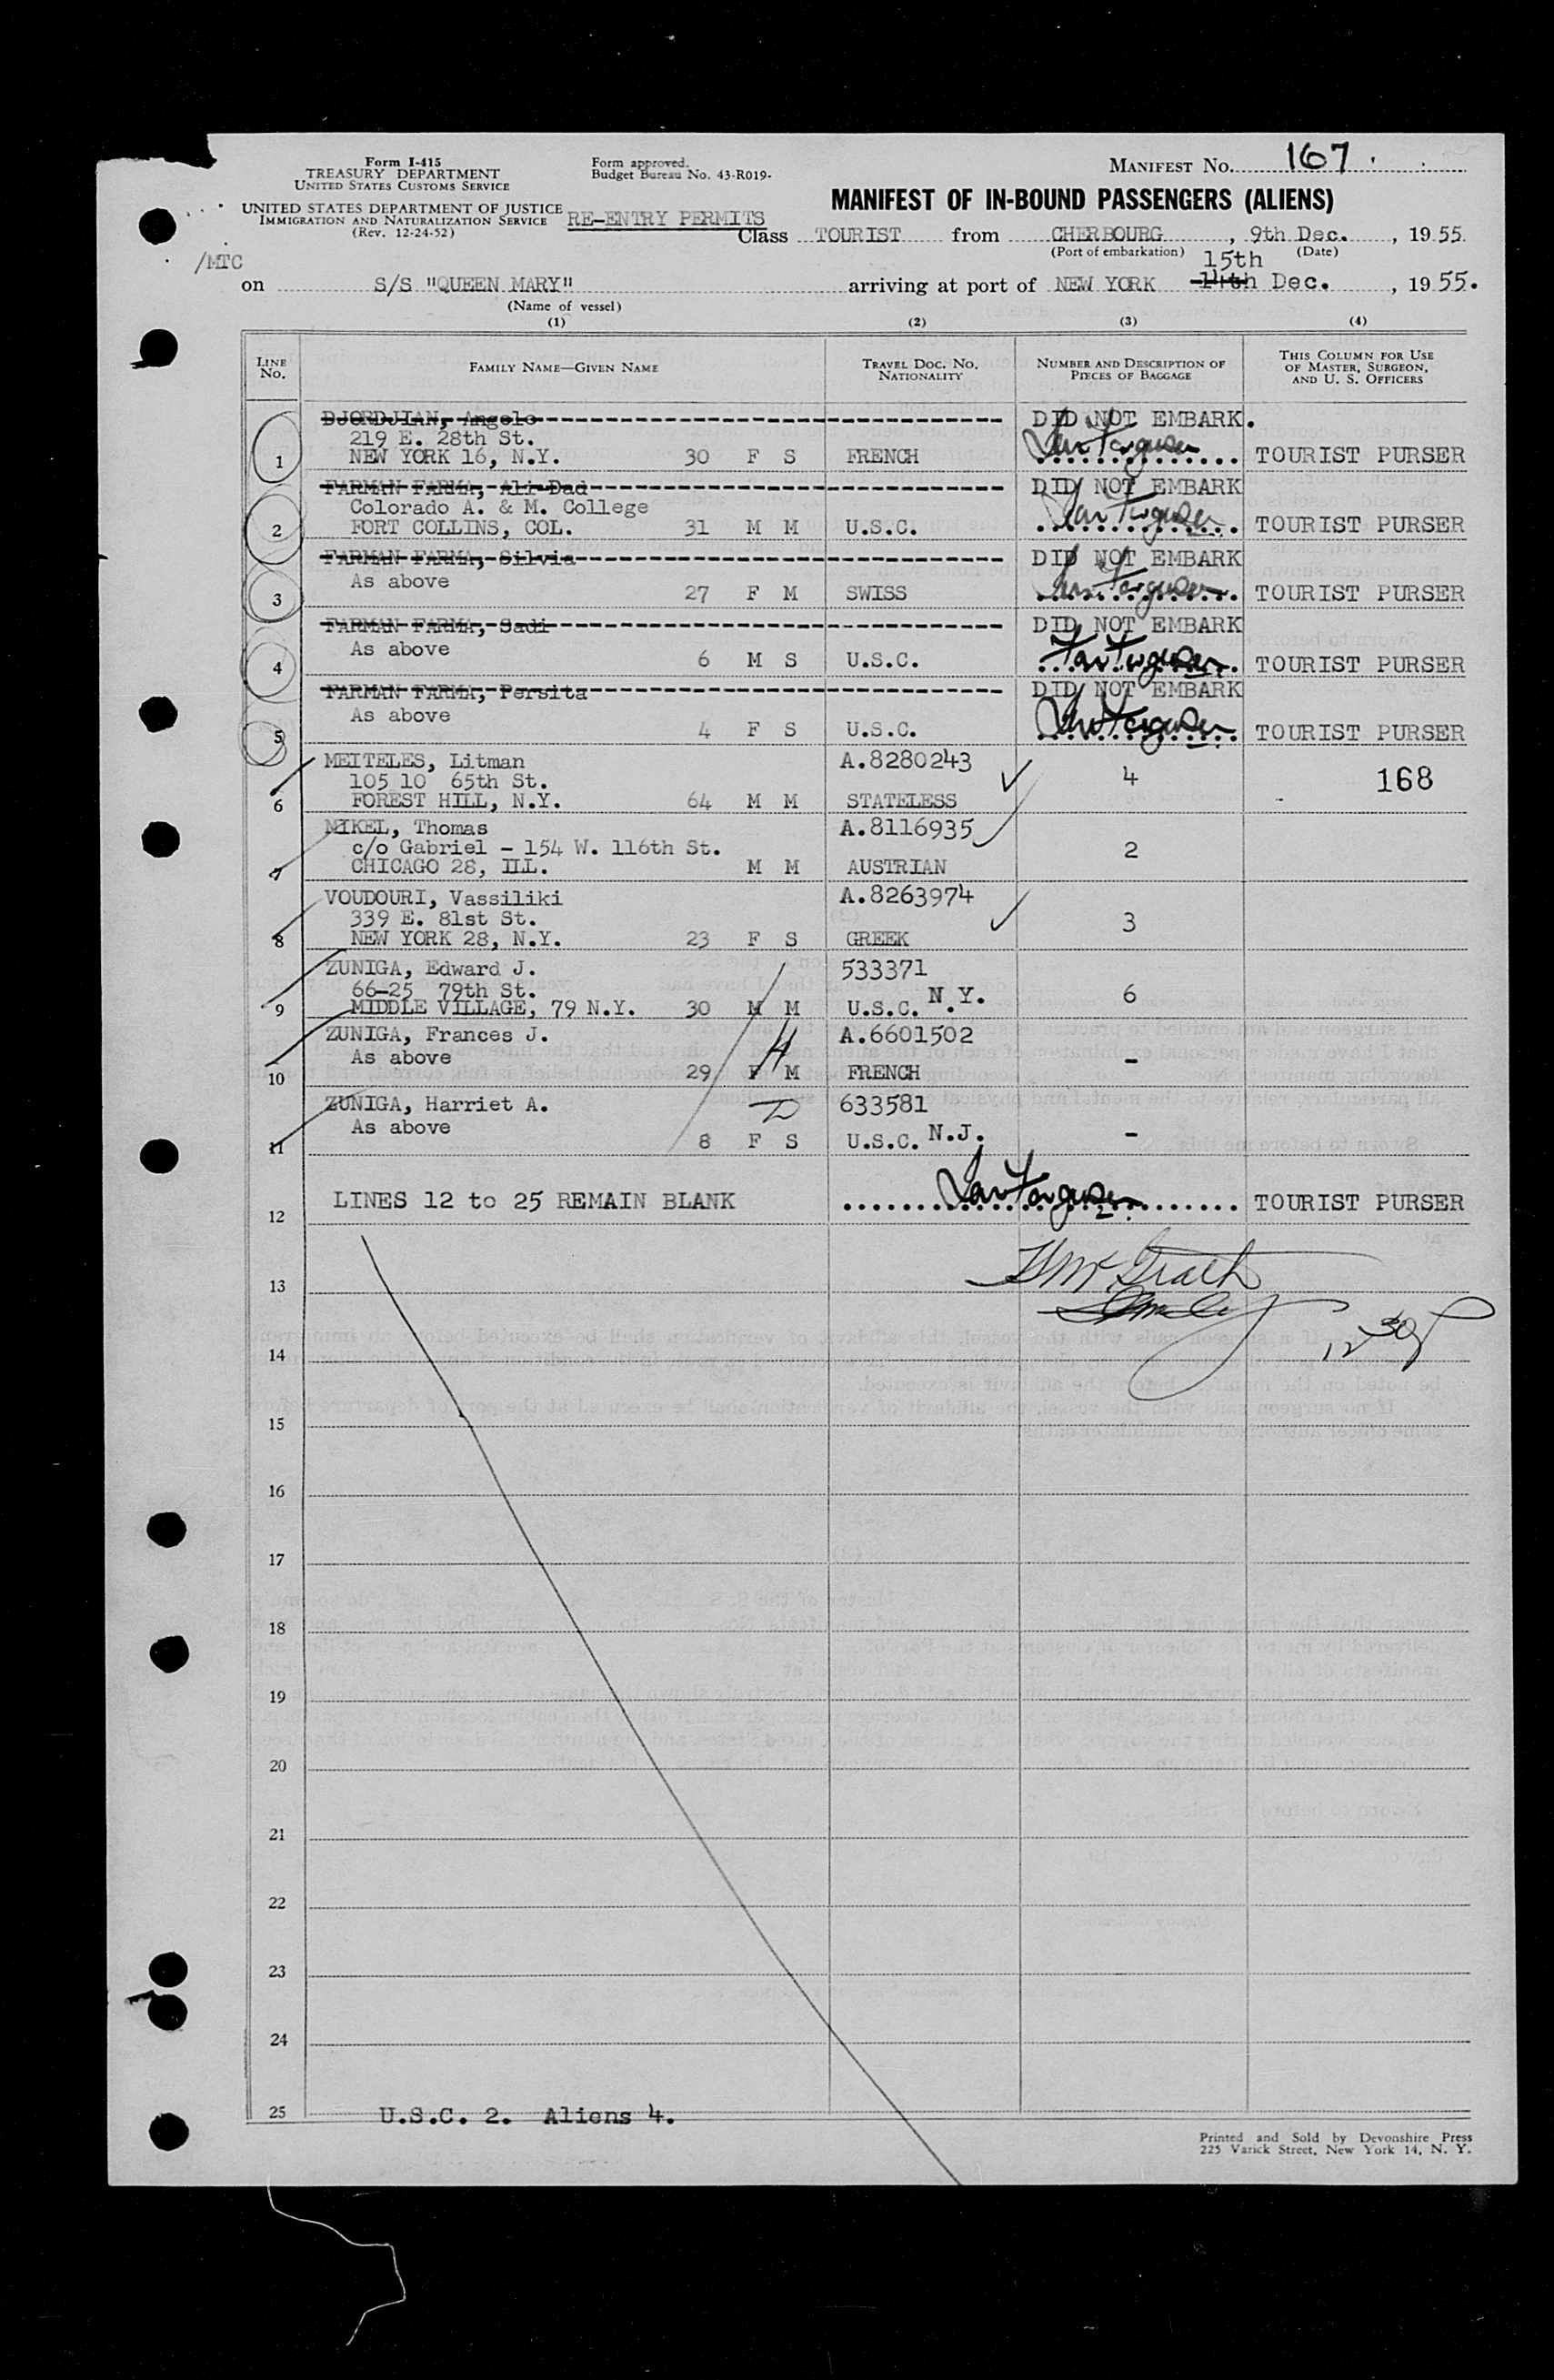 Form I-415
TREASURY DEPARTMENT
UNITED STATES CUSTOMS SERVICE
UNITED STATES DEPARTMENT OF JUSTICE
IMMIGRATION AND NATURALIZATION SERVICE
(Rev. 12-24-52)
Form approved.
Budget Bureau No. 43-R019-
MANIFEST NO. 167
MANIFEST OF IN-BOUND PASSENGERS (ALIENS)
RE-ENTRY PERMITS
Class TOURIST from CHERBOURG, 9th Dec., 1955
(Port of embarkation) (Date)
/MTC
15th
on S/S "QUEEN MARY" arriving at port of NEW YORK 14th Dec., 1955.
(Name of vessel)
(1) (2) (3) (4)
LINE NO. FAMILY NAME—GIVEN NAME TRAVEL DOC. NO. NATIONALITY NUMBER AND DESCRIPTION OF PIECES OF BAGGAGE THIS COLUMN FOR USE OF MASTER, SURGEON, AND U. S. OFFICERS
DJORDJIAN, Angele DID NOT EMBARK.
219 E. 28th St.
1 NEW YORK 16, N.Y. 30 F S FRENCH Ian Ferguson TOURIST PURSER
FARMAN FARMA, Ali-Dad DID NOT EMBARK
Colorado A. & M. College
2 FORT COLLINS, COL. 31 M M U.S.C. Ian Ferguson TOURIST PURSER
FARMAN FARMA, Silvia DID NOT EMBARK
As above
3 27 F M SWISS Ian Ferguson TOURIST PURSER
FARMAN FARMA, Sadi DID NOT EMBARK
As above
4 6 M S U.S.C. Ian Ferguson TOURIST PURSER
FARMAN FARMA, Persita DID NOT EMBARK
As above
5 4 F S U.S.C. Ian Ferguson TOURIST PURSER
MEITELES, Litman A.8280243
105 10 65th St. 4 168
6 FOREST HILL, N.Y. 64 M M STATELESS
MIKEL, Thomas A.8116935
c/o Gabriel - 154 W. 116th St. 2
7 CHICAGO 28, ILL. M M AUSTRIAN
VOUDOURI, Vassiliki A.8263974
339 E. 81st St. 3
8 NEW YORK 28, N.Y. 23 F S GREEK
ZUNIGA, Edward J. 533371
66-25 79th St. 6
9 MIDDLE VILLAGE, 79 N.Y. 30 M M U.S.C. N.Y.
ZUNIGA, Frances J. A.6601502
As above -
10 29 F M FRENCH
ZUNIGA, Harriet A. 633581
As above -
11 8 F S U.S.C. N.J.
12 LINES 12 to 25 REMAIN BLANK Ian Ferguson TOURIST PURSER
13 McGrath
14 12 30p
15
16
17
18
19
20
21
22
23
24
25 U.S.C. 2. Aliens 4.
Printed and Sold by Devonshire Press
225 Varick Street, New York 14, N. Y.